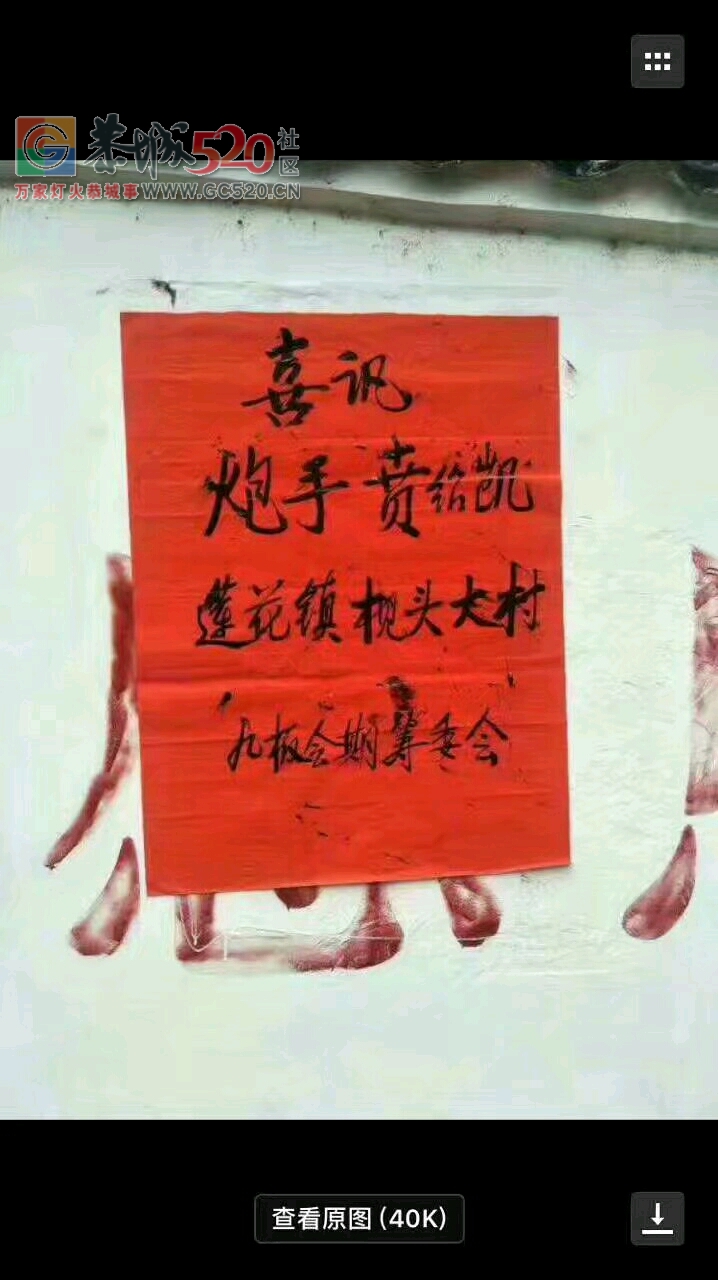 恭城520社区
万家灯火恭城事 WWW.GC520.CN
喜讯
炮手 贲给凯
莲花镇枧头大村
九板会期筹委会
查看原图 (40K)